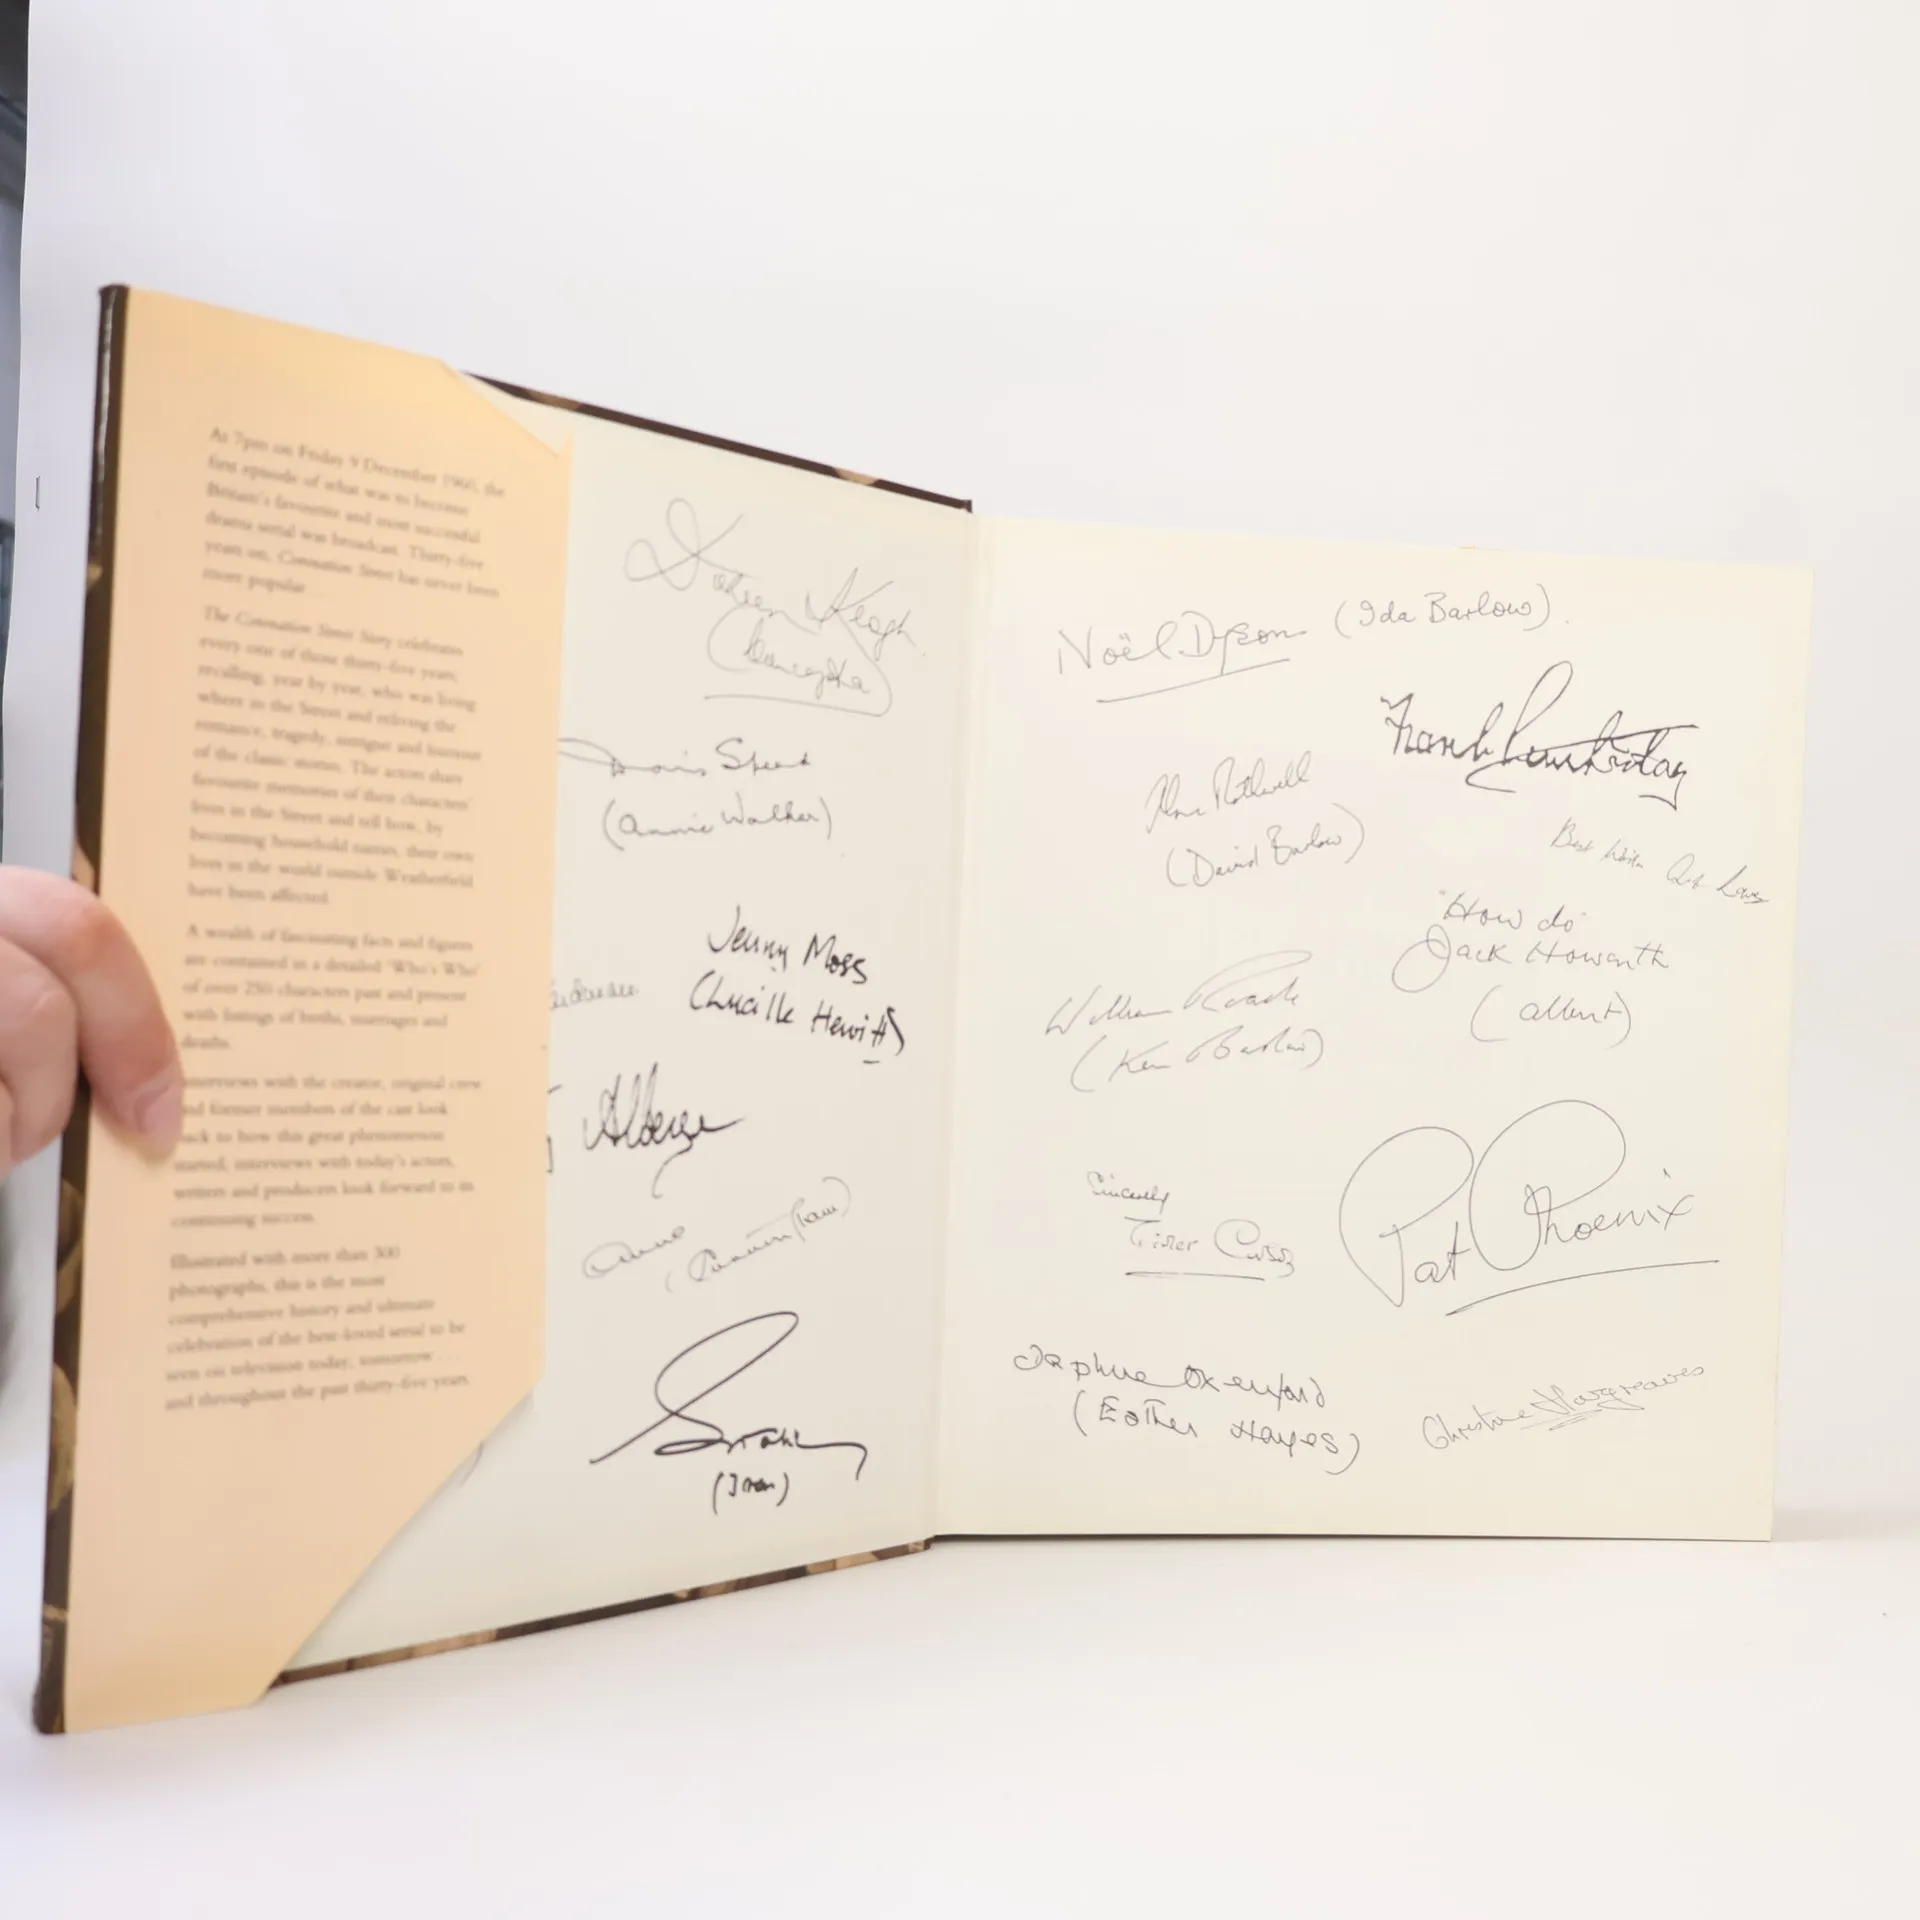 At 7pm on Friday 9 December 1960, the
first episode of what was to become
Britain's favourite and most successful
drama serial was broadcast. Thirty-five
years on, Coronation Street has never been
more popular . . .
The Coronation Street Story celebrates
every one of those thirty-five years,
recalling, year by year, who was living
where in the Street and reliving the
romance, tragedy, intrigue and humour
of the classic stories. The actors share
favourite memories of their characters'
lives in the Street and tell how, by
becoming household names, their own
lives in the world outside Weatherfield
have been affected.
A wealth of fascinating facts and figures
are contained in a detailed 'Who's Who'
of over 250 characters past and present
with listings of births, marriages and
deaths.
Interviews with the creator, original crew
and former members of the cast look
back to how this great phenomenon
started; interviews with today's actors,
writers and producers look forward to its
continuing success.
Illustrated with more than 300
photographs, this is the most
comprehensive history and ultimate
celebration of the best-loved serial to be
seen on television today, tomorrow . . .
and throughout the past thirty-five years.
Doreen Keogh
(Concepta)
Doris Speed
(Annie Walker)
Jenny Moss
(Lucille Hewitt)
Alberge
Anne
(Cunningham)
(Ivan)
Noël Dyson (Ida Barlow).
Alan Rothwell
(David Barlow)
Best Wishes
"How do"
Jack Howarth
(Albert)
William Roache
(Ken Barlow)
Sincerely
Pat Phoenix
Daphne Oxenford
(Esther Hayes)
Christine Hargreaves